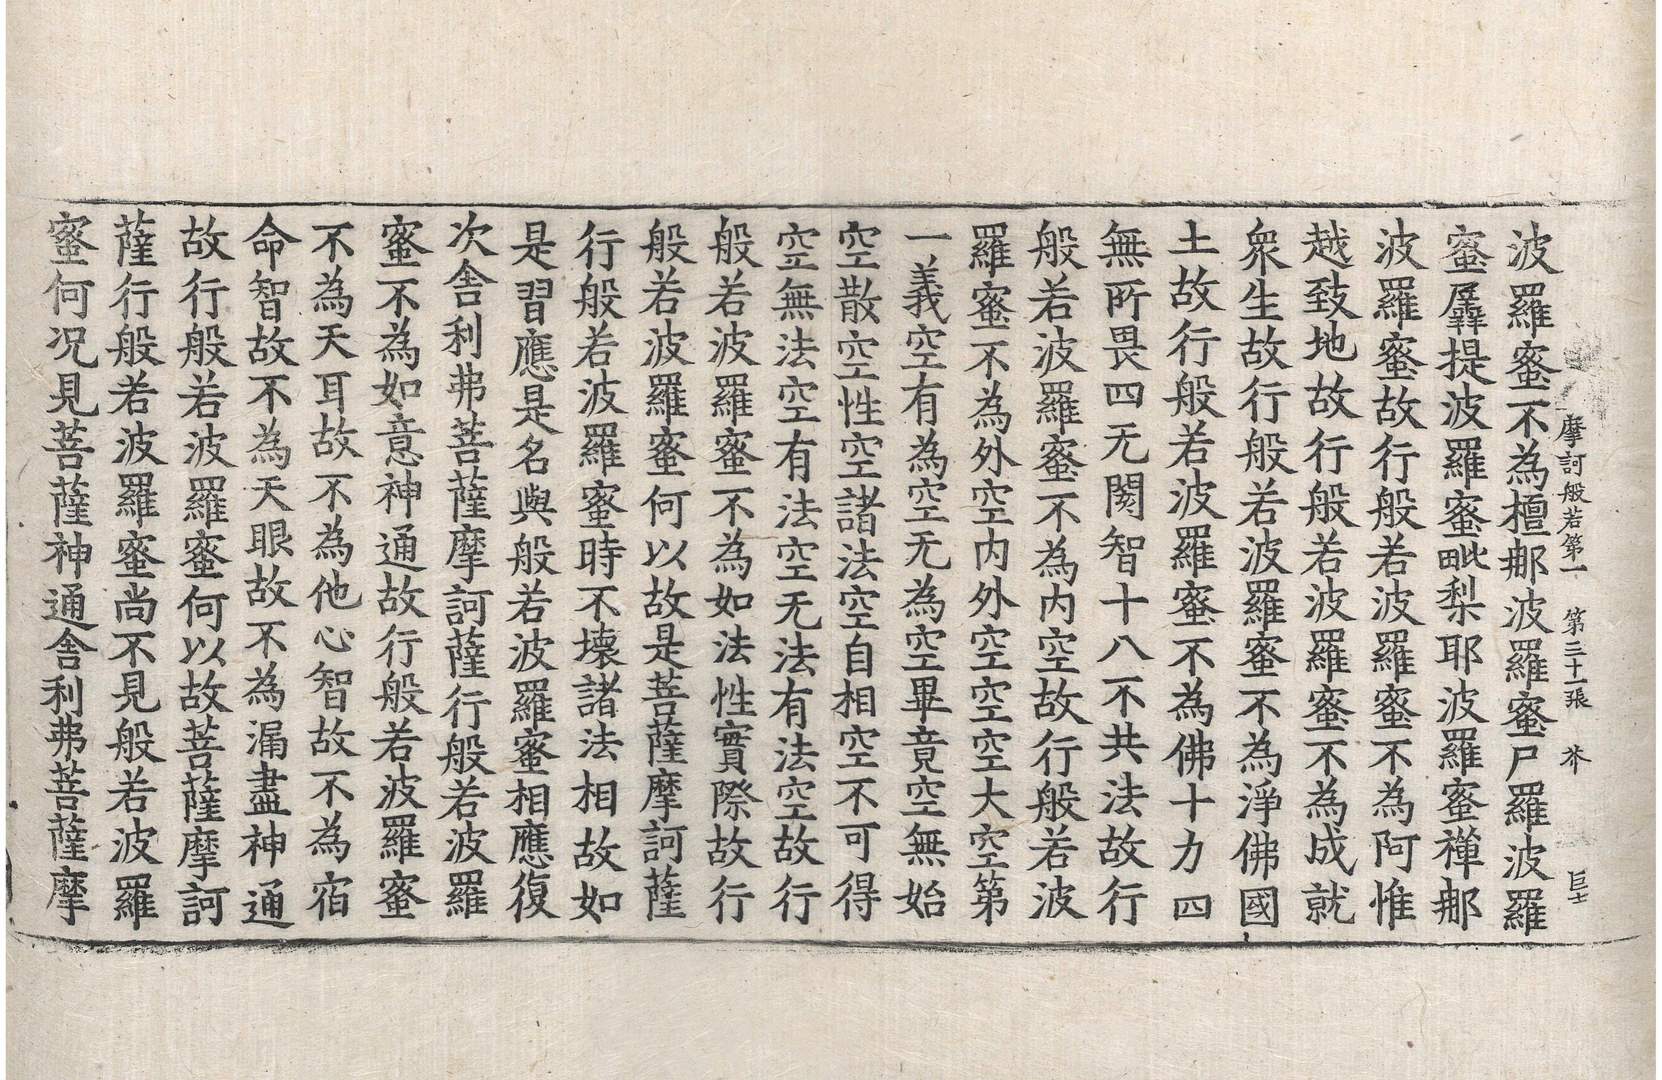 摩訶般若第一 第三十一張 芥 巨士
波羅蜜不為檀𨚗波羅蜜尸羅波羅
蜜羼提波羅蜜毗梨耶波羅蜜禪𨚗
波羅蜜故行般若波羅蜜不為阿惟
越致地故行般若波羅蜜不為成就
衆生故行般若波羅蜜不為淨佛國
土故行般若波羅蜜不為佛十力四
無所畏四无閡智十八不共法故行
般若波羅蜜不為內空故行般若波
羅蜜不為外空內外空空空大空第
一義空有為空无為空畢竟空無始
空散空性空諸法空自相空不可得
空無法空有法空无法有法空故行
般若波羅蜜不為如法性實際故行
般若波羅蜜何以故是菩薩摩訶薩
行般若波羅蜜時不壞諸法相故如
是習應是名與般若波羅蜜相應復
次舍利弗菩薩摩訶薩行般若波羅
蜜不為如意神通故行般若波羅蜜
不為天耳故不為他心智故不為宿
命智故不為天眼故不為漏盡神通
故行般若波羅蜜何以故菩薩摩訶
薩行般若波羅蜜尚不見般若波羅
蜜何況見菩薩神通舍利弗菩薩摩